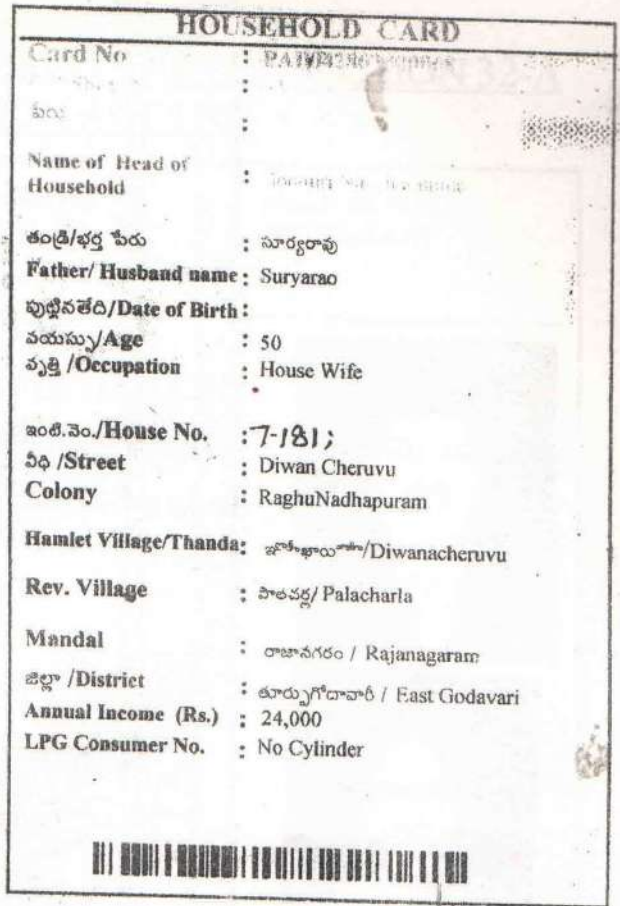 HOUSEHOLD CARD
Card No :
:
పేరు :
Name of Head of
Household :
తండ్రి/భర్త పేరు : సూర్యరావు
Father/ Husband name : Suryarao
పుట్టినతేది/Date of Birth :
వయస్సు/Age : 50
వృత్తి /Occupation : House Wife
ఇంటి.నెం./House No. : 7-181;
వీధి /Street : Diwan Cheruvu
Colony : RaghuNadhapuram
Hamlet Village/Thanda: /Diwanacheruvu
Rev. Village : పాలచర్ల/ Palacharla
Mandal : రాజానగరం / Rajanagaram
జిల్లా /District : తూర్పుగోదావారి / East Godavari
Annual Income (Rs.) : 24,000
LPG Consumer No. : No Cylinder